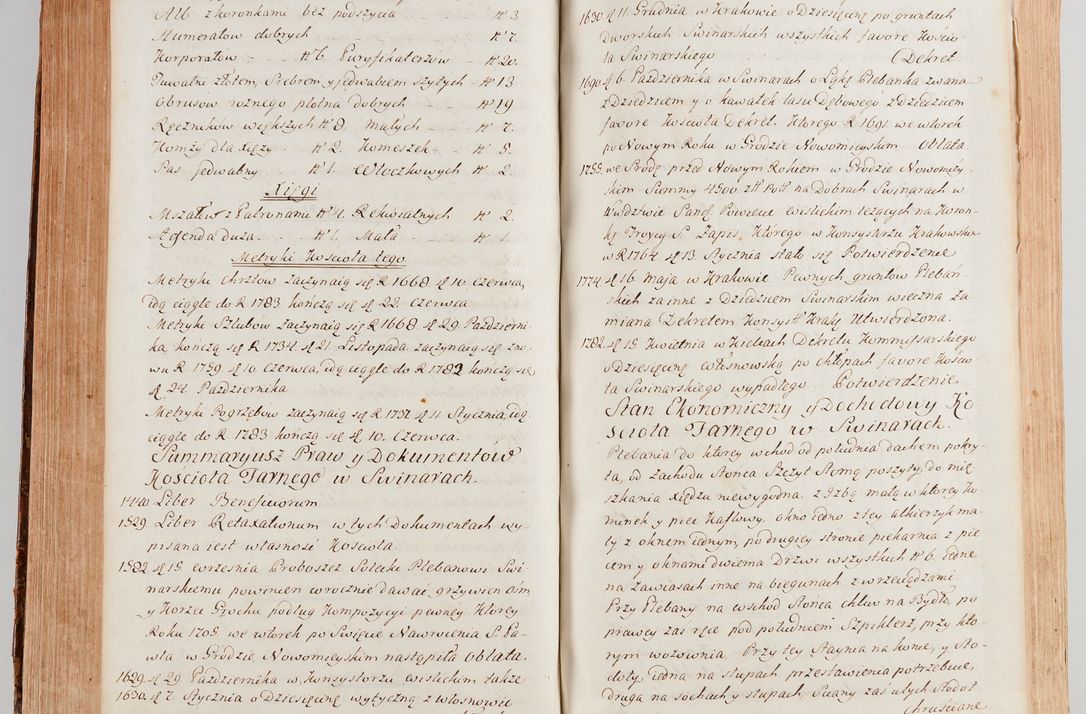 Alb z koronkami bez podszycia — N° 3
Humerałow dobrych — N° 7.
Korporałow — N° 6 Puryfikaterzow — N° 20.
Tuwalni złotem, Srebrem y jedwabiem szytych — N° 13
Obrusow rożnego płotna dobrych — N° 19
Ręcznikow większych N° 8. Małych — N° 7.
Komży dla Xięży — N° 2. Komeszek — N° 5.
Pas jedwabny — N° 1. Włoczkowych N° 2.
Xięgi
Mszałow z Patronami N° 4. Rekwialnych N° 2.
Agenda duża — N° 1. Mała — N° 1.
Metryki Kościoła tego
Metryki Chrztow zaczynaią się R 1668. d. 10. Czerwca,
idą ciągle do R 1783 kończą się d. 23. Czerwca.
Metryki Szlubow zaczynaią się R 1668. d. 29. Październi-
ka, kończą się R 1734. d. 21. Listopada. zaczynaią się zno-
wu R. 1759. d. 10. Czerwca, idą ciągle do R. 1782 kończą się
d. 24. Października
Metryki Pogrzebow zaczynaią się R. 1737. d. 11. Stycznia, idą
ciągle do R 1783 kończą się d. 10. Czerwca.
Summaryusz Praw y Dokumentow
Kościoła Farnego w Swinarach.
1440. Liber Beneficiorum
1529. Liber Retaxationum w tych Dokumentach wy-
pisana iest własność Kościoła
1582. d. 15. Września Proboszcz Solecki Plebanowi Swi-
narskiemu powinien corocznie dawać grzywien osm
y Korzec Grochu podług Kompozycyi pewney. Ktorey
Roku 1705. we wtorek po Święcie Nawrocenia S. Pa-
wła w Grodzie Nowomieyskim nastąpiła oblata.
1629. d. 29. Października w Konsystorzu Wislickim także
1630. d. 7. Stycznia o Dziesięcinę wytyczną z Włosnowic
1630. d. 11. Grudnia w Krakowie o Dziesięcinę po gruntach
Dworskich Swinarskich wszystkich favore Koscio-
ła Swinarskiego (Dekret
1690. d. 6. Października w Swinarach o Łąkę Plebanka zwaną
z Dziedzicem y o kawałek lasu Dębowego z Dziedzicem
favore Kościoła Dekret. Ktorego R 1691. we wtorek
po Nowym Roku w Grodzie Nowomieyskim Oblata
1755. we Srodę przed Nowym Rokiem w Grodzie Nowomiey-
skim Summy 4500. zł Pol na Dobrach Swinarach w
Wdztwie Sand Powiecie Wislickim leżących na Koron-
kę Troycy S. Zapis. Ktorego w Konsystorzu Krakowskim
w R 1764. d. 13. Stycznia stało się Potwierdzenie
1774. d. 16. Maja w Krakowie. Pewnych gruntow Pleban-
skich za inne z Dziedzicem Swinarskim wieczna Za-
miana Dekretem Konsyst Krakg Utwierdzona.
1782. d. 15. Kwietnia w Kielcach Dekretu Kommissarskiego
o Dziesięcinę Włosnowską po Chłopach favore Koscio-
ła Swinarskiego wypadłego Potwierdzenie
Stan Ekonomiczny y Dochodowy Ko-
scioła Farnego w Swinarach.
Plebania do ktorey wchod od południa dachem pokry-
ta, od zachodu Słonca Szczyt Słomą poszyty do mie-
szkania Xiędzu niewygodna. z Izbą małą w ktorey Ko-
minek y piec Kaflowy. okno iedno z tey alkierzyk ma-
ły z oknem iednym, po drugiey stronie piekarnia z pie-
cem y oknami dwiema Drzwi wszystkich N° 6. iedne
na zawiasach inne na biegunach z wrzeciądzami
Przy Plebany na wschod Słońca chlew na Bydło, po-
prawey zaś ręce pod południem Szpiklerz, przy kto-
rym wozownia. Przy tey Staynia na konie, y Sto-
doły, iedna na słupach przestawienia potrzebuie,
druga na sochach y słupach, Sciany zaś u tych Stodoł
chruściane